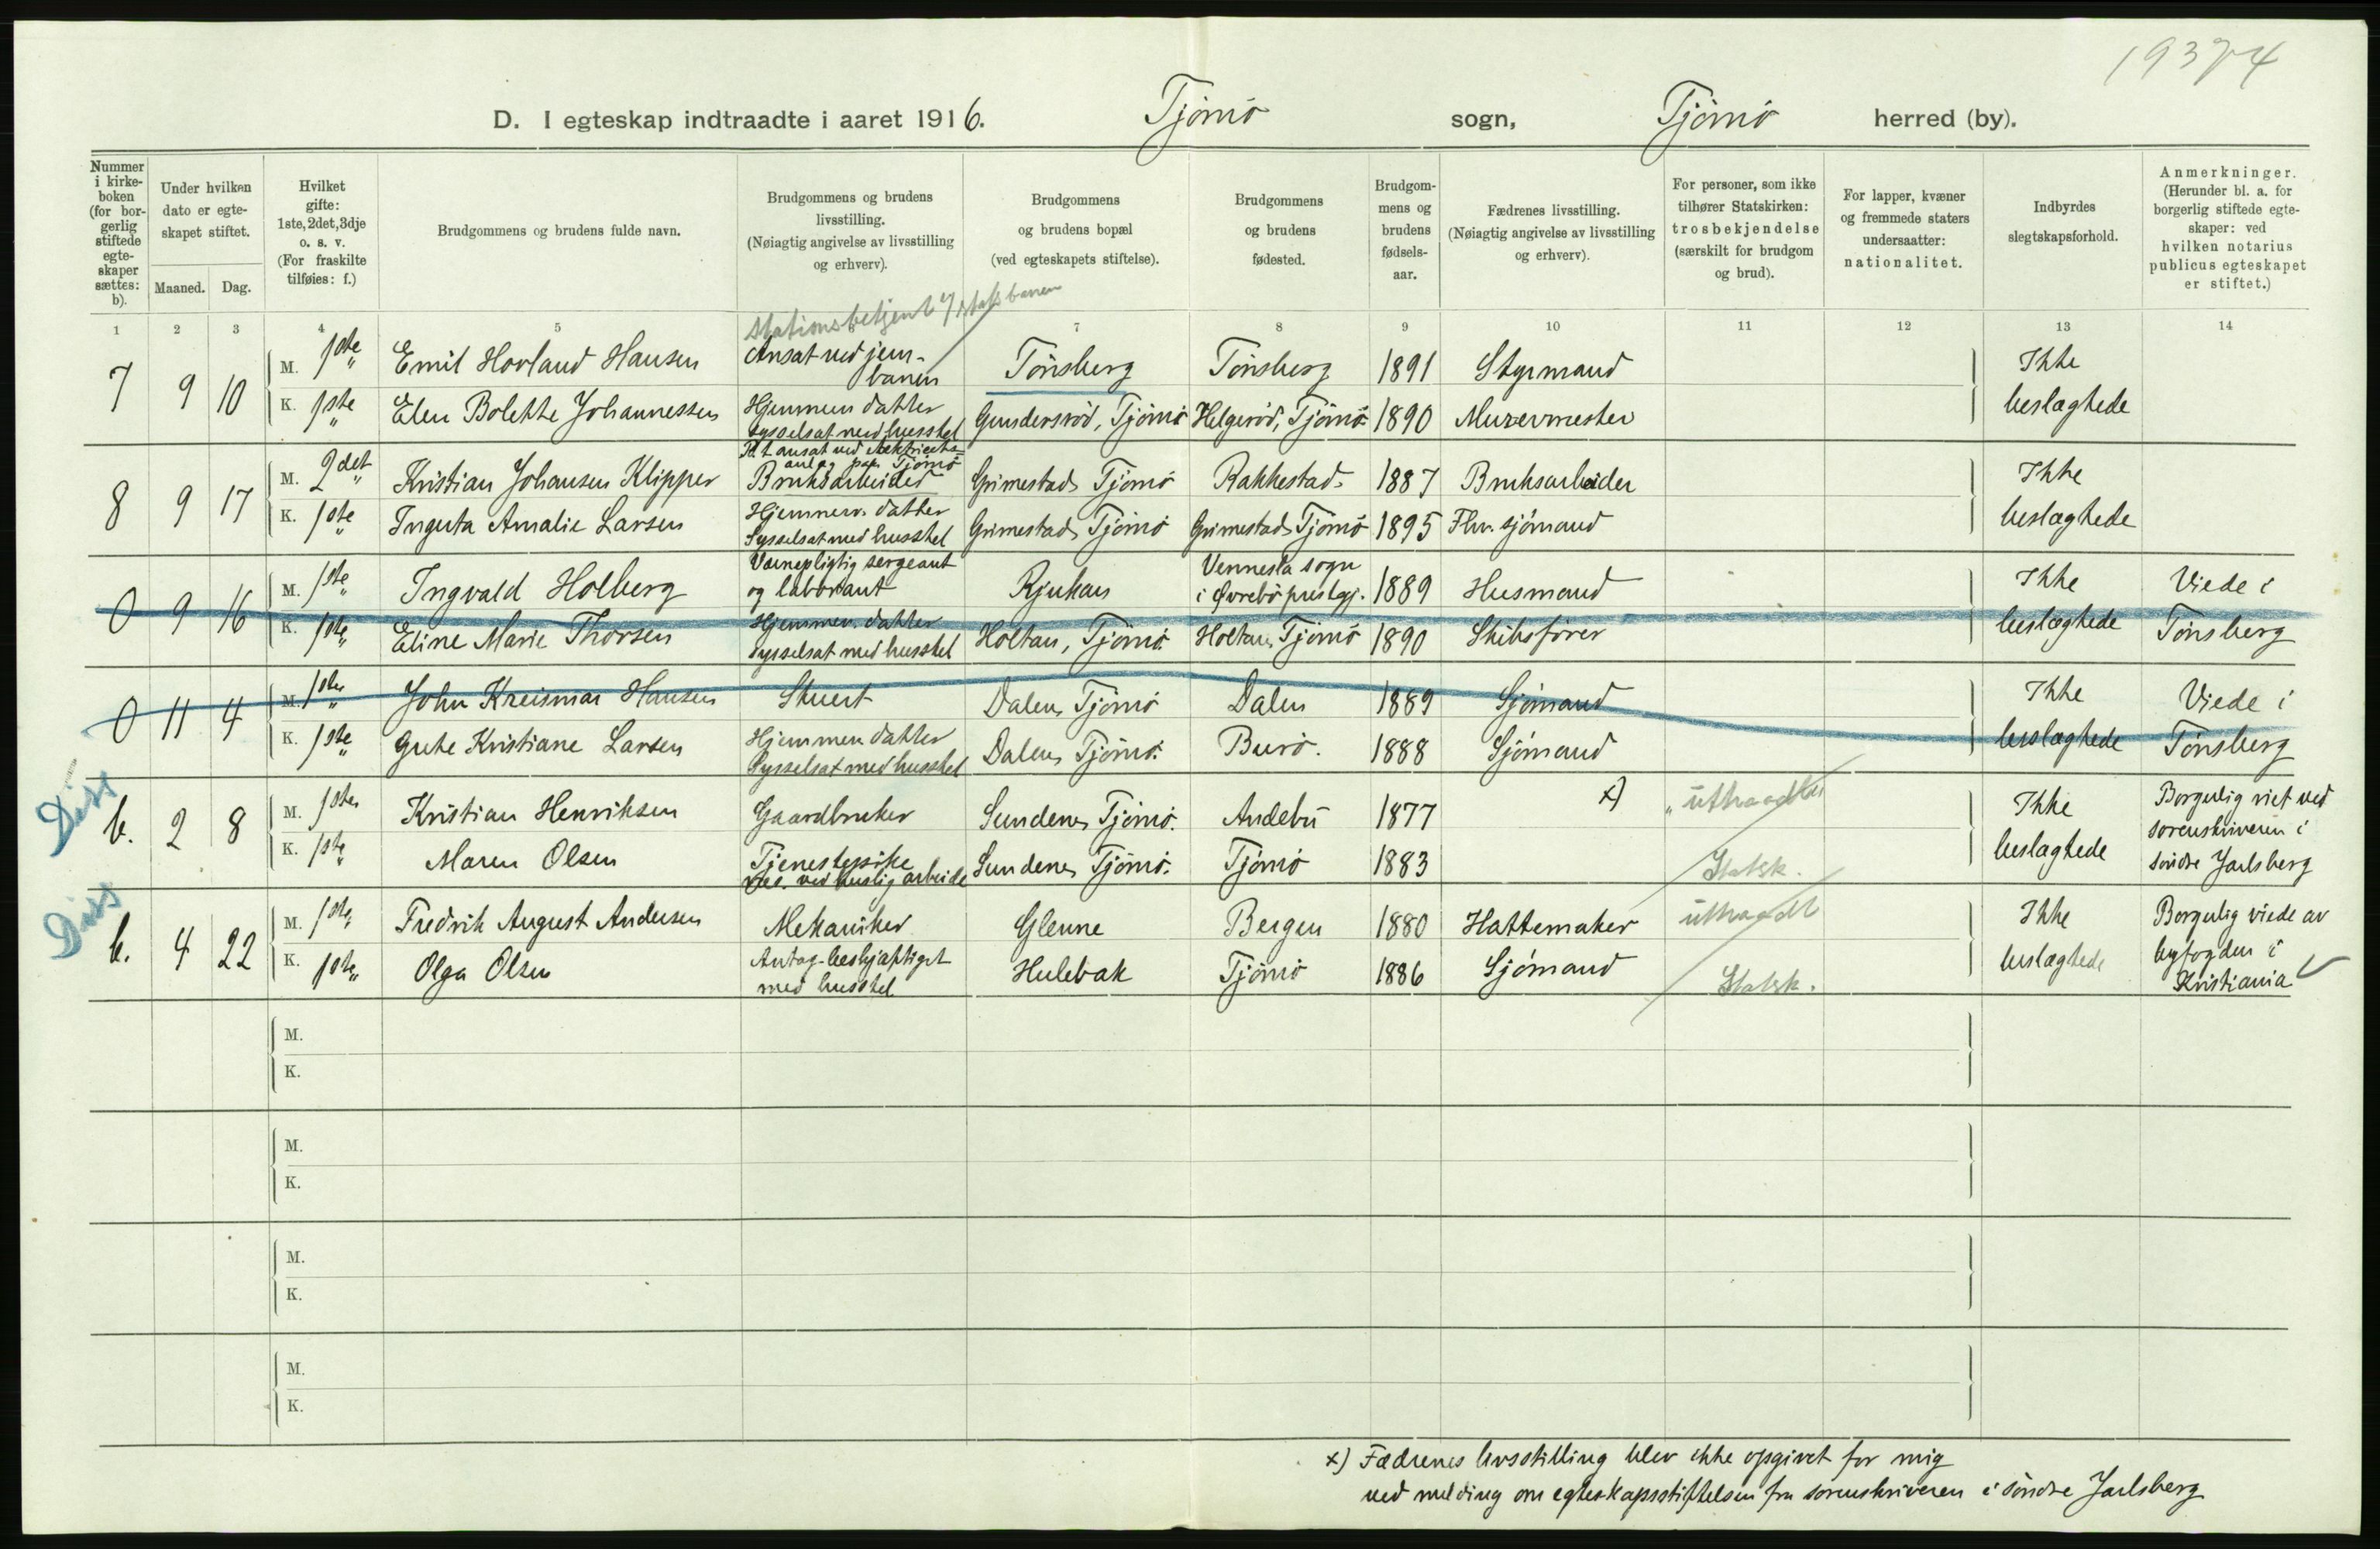 19374
D. I egteskap indtraadte i aaret 1916. Tjömö sogn, Tjömö herred (by).
Nummer i kirkeboken (for borgerlig stiftede egteskaper sættes: b).
Under hvilken dato er egteskapet stiftet.
Maaned. Dag.
Hvilket gifte: 1ste, 2det, 3dje o. s. v. (For fraskilte tilføies: f.)
Brudgommens og brudens fulde navn.
Brudgommens og brudens livsstilling. (Nøiagtig angivelse av livsstilling og erhverv).
Brudgommens og brudens bopæl (ved egteskapets stiftelse).
Brudgommens og brudens fødested.
Brudgommens og brudens fødselsaar.
Fædrenes livsstilling. (Nøiagtig angivelse av livsstilling og erhverv).
For personer, som ikke tilhører Statskirken: trosbekjendelse (særskilt for brudgom og brud).
For lapper, kvæner og fremmede staters undersaatter: nationalitet.
Indbyrdes slegtskapsforhold.
Anmerkninger. (Herunder bl. a. for borgerlig stiftede egteskaper: ved hvilken notarius publicus egteskapet er stiftet.)
1 2 3 4 5 7 8 9 10 11 12 13 14
Stationsbetjent v/ statsbanen
7 9 10 M. 1ste Emil Hovland Hansen Ansat ved jernbanen Tönsberg Tönsberg 1891 Styrmand Ikke
K. 1ste " Elen Bolette Johannessen Hjemmev. datter sysselsat med husstel Gundersröd, Tjömö Helgeröd, Tjömö 1890 Murermester beslægtede
8 9 17 M. 2det " Kristian Johansen Klipper P.t ansat ved elektricitetsanlæg paa Tjömö Bruksarbeider Grimestad, Tjömö Rakkestad. 1887 Bruksarbeider Ikke
K. 1ste " Inguta Amalie Larsen Hjemmev. datter Sysselsat med husstel Grimestad, Tjömö Grimestad, Tjömö 1895 Fhv. sjömand beslægtede
0 9 16 M. 1ste Ingvald Holberg Værnepligtig sergeant og laborant Rjukan Vennesla sogn i Øvrebö prestgj. 1889 Husmand Ikke Viede i
K. 1ste " Eline Marie Thorsen Hjemmev. datter sysselsat med husstel Holtan, Tjömö Holtan, Tjömö 1890 Skibsförer beslægtede Tönsberg
0 11 4 M. 1ste " John Kreismar Hansen Stuert Dalen, Tjömö Dalen 1889 Sjömand Ikke Viede i
K. 1ste " Gute Kristiane Larsen Hjemmev. datter Sysselsat med husstel Dalen, Tjömö. Burö. 1888 Sjömand beslægtede Tönsberg
Diss
b. 2 8 M. 1ste Kristian Henriksen Gaardbruker Sundene, Tjömö. Andebu 1877 x) " uttraadte Ikke Borgerlig viet ved
K. 1ste " Maren Olsen Tjenestepike ved huslig arbeide Sundene, Tjömö. Tjömö 1883 Statsk. beslægtede sorenskriveren i söndre Jarlsberg
Diss
b. 4 22 M. 1ste Fredrik August Andersen Mekaniker Glenne Bergen 1880 Hattemaker uttraadt Ikke Borgerlig viede av
K. 1ste " Olga Olsen Antag. beskjæftiget med husstel Hulebak Tjömö 1886 Sjömand Statsk. beslægtede byfogden i Kristiania
M.
K.
M.
K.
M.
K.
M.
K.
x) Fædrenes livsstilling blev ikke opgivet for mig
ved melding om egteskapsstiftelsen fra sorenskriveren i söndre Jarlsberg